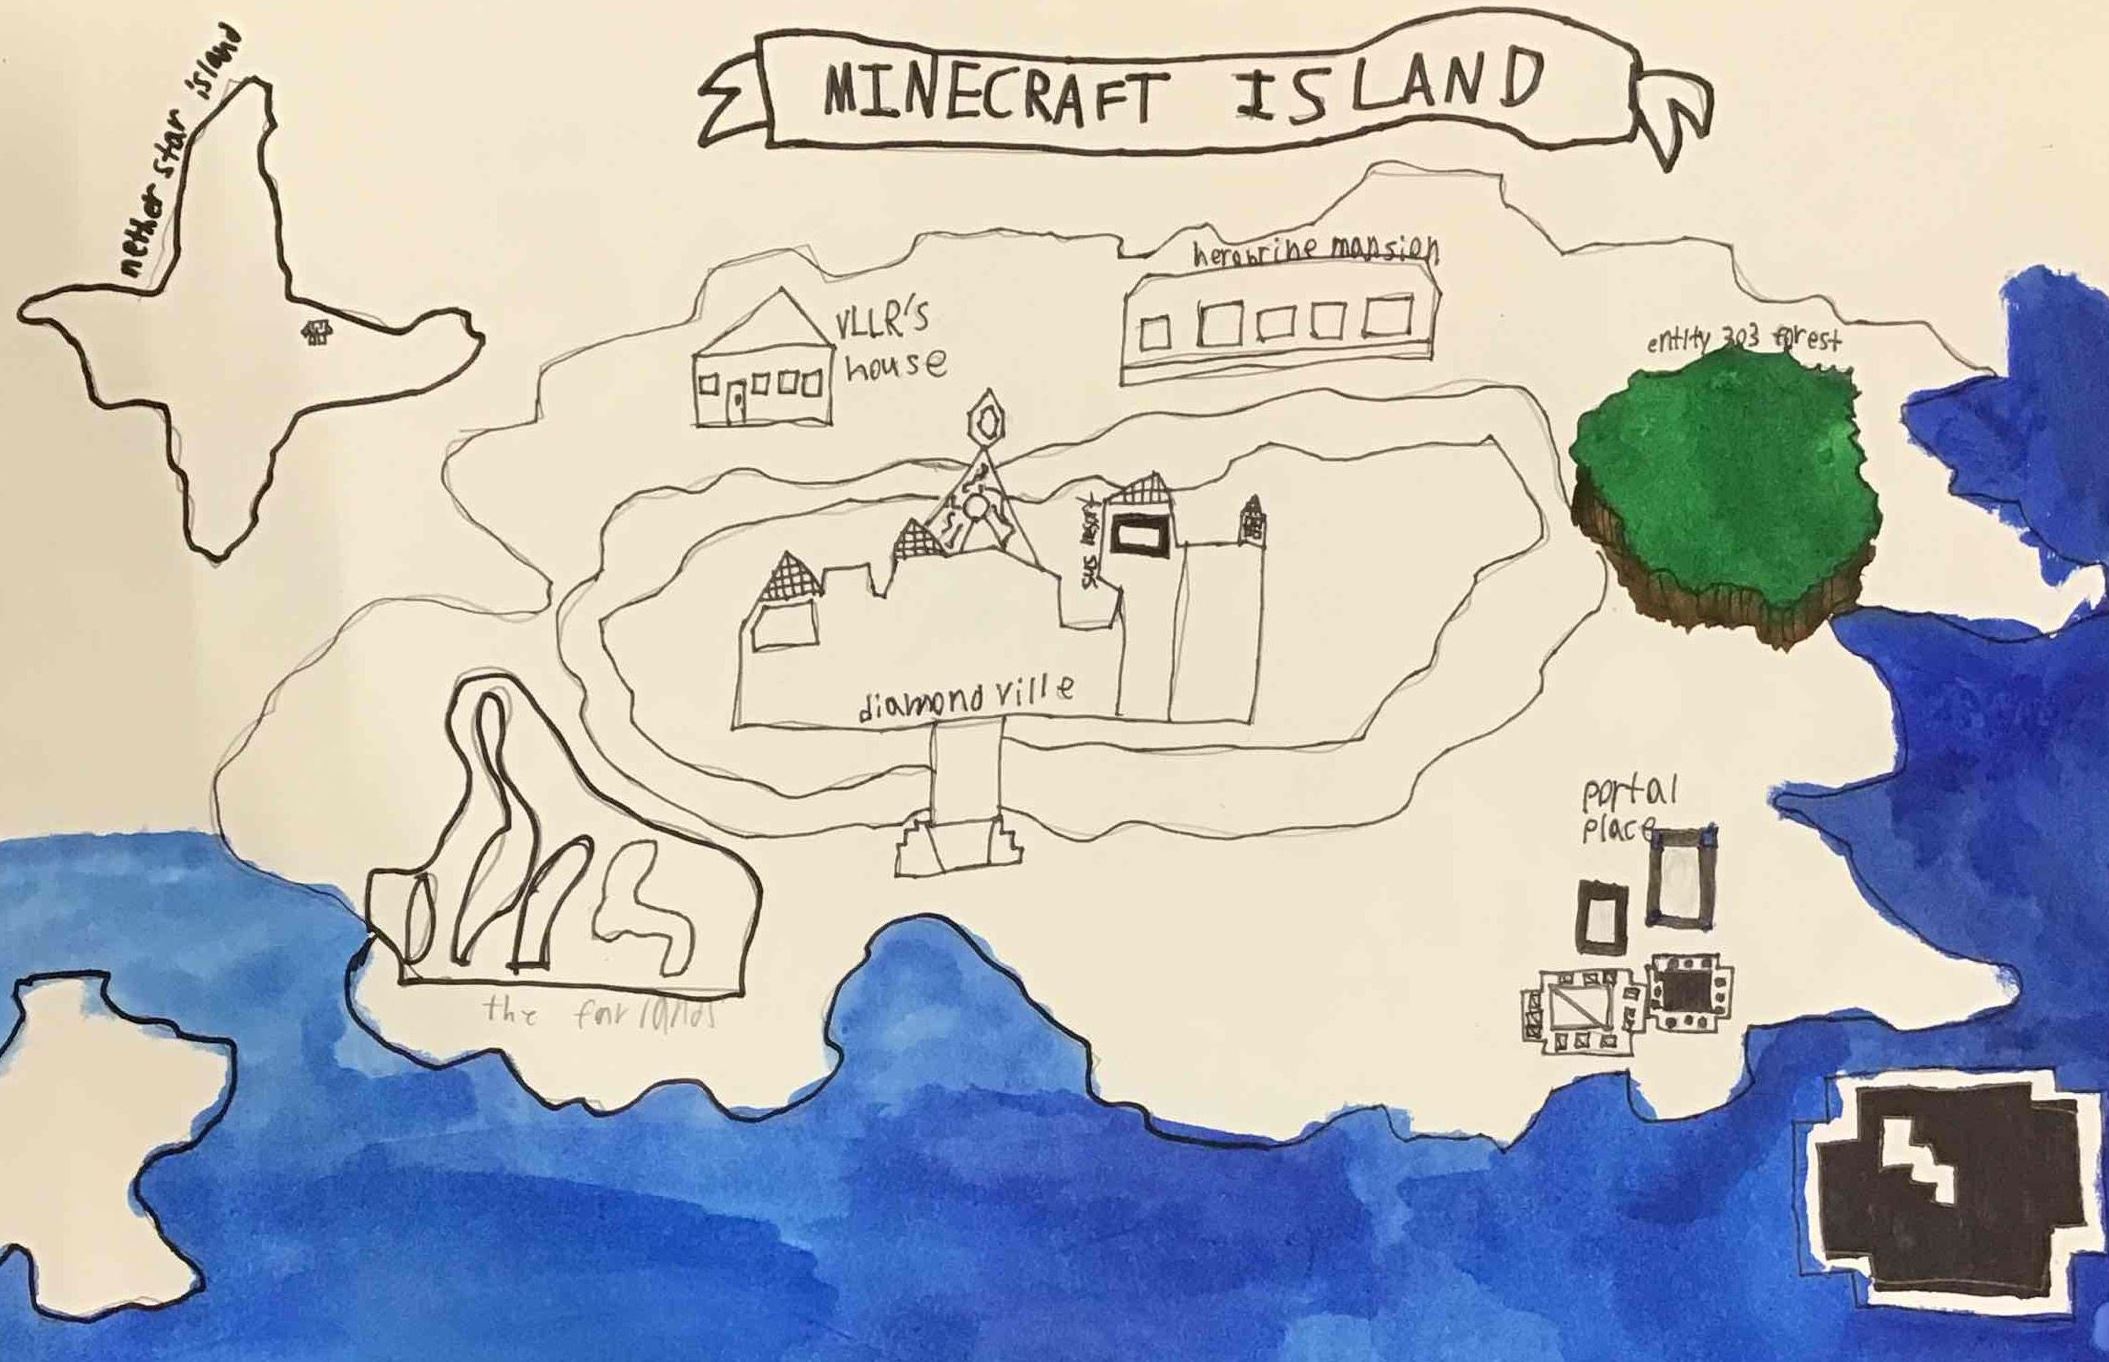 MINECRAFT ISLAND
nether star island
herobrine mansion
VLLR'S
house
entity 303 forest
diamond ville
portal
place
the far lands